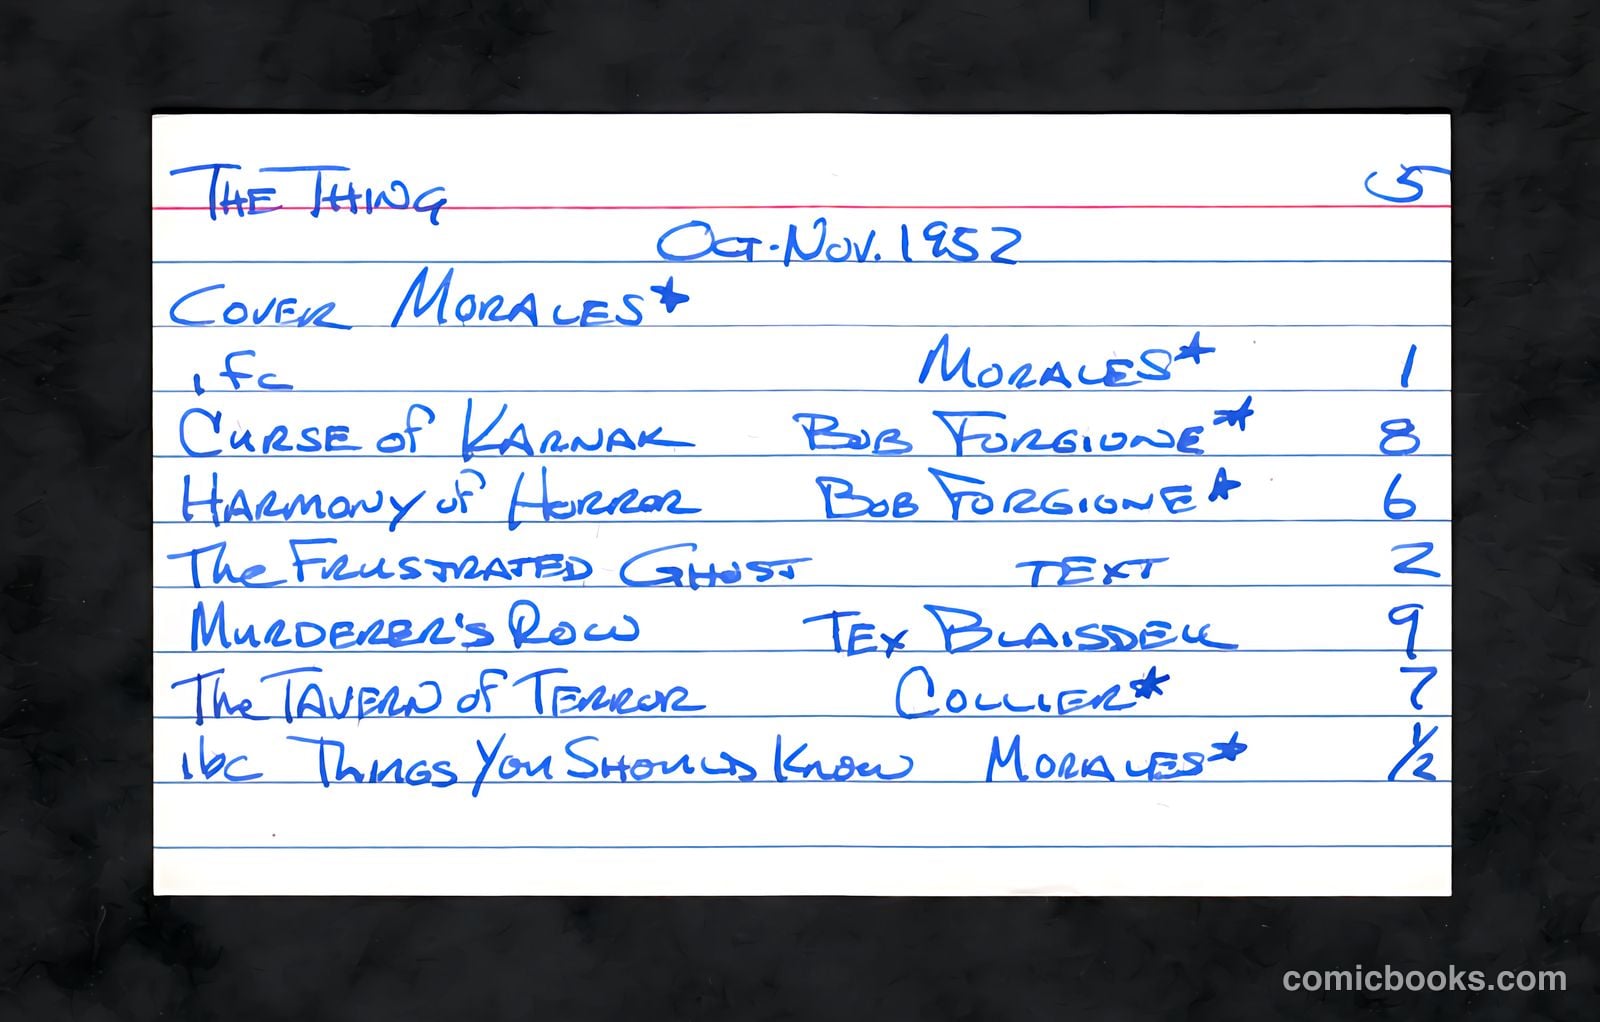 The Thing 5
Oct-Nov. 1952
Cover Morales*
ifc Morales* 1
Curse of Karnak Bob Forgione* 8
Harmony of Horror Bob Forgione* 6
The Frustrated Ghost TEXT 2
Murderer's Row Tex Blaisdell 9
The Tavern of Terror Collier* 7
ibc Things You Should Know Morales* 1/2
comicbooks.com